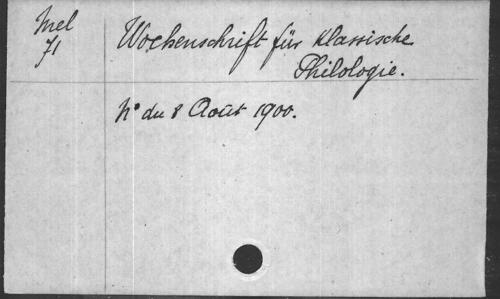 Mel
71
Wochenschrift für klassische
Philologie.
N° du 8 Août 1900.